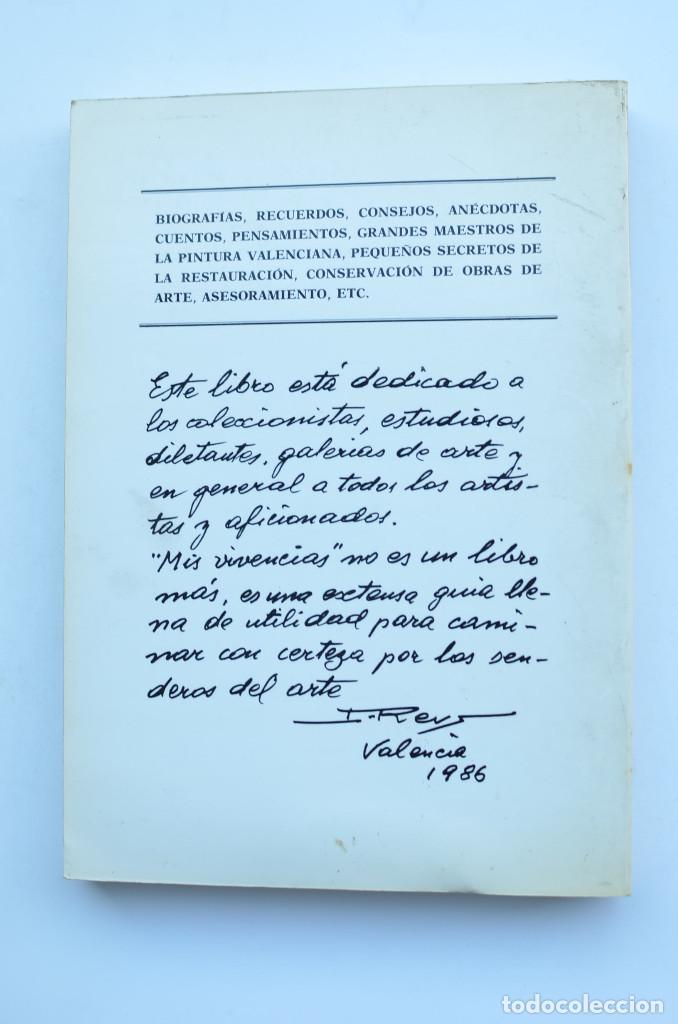 BIOGRAFÍAS, RECUERDOS, CONSEJOS, ANÉCDOTAS,
CUENTOS, PENSAMIENTOS, GRANDES MAESTROS DE
LA PINTURA VALENCIANA, PEQUEÑOS SECRETOS DE
LA RESTAURACIÓN, CONSERVACIÓN DE OBRAS DE
ARTE, ASESORAMIENTO, ETC.
Este libro está dedicado a
los coleccionistas, estudiosos,
diletantes, galerias de arte y
en general a todos los artis-
tas y aficionados.
"Mis vivencias" no es un libro
más, es una extensa guia lle-
na de utilidad para cami-
nar con certeza por los sen-
deros del arte
Valencia
1986
todocoleccion